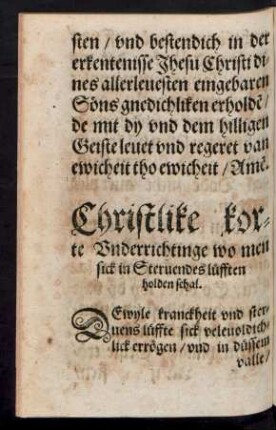 sten / vnd bestendich in der
erkentenisse Jhesu Christi di-
nes allerleuesten eingebaren
Söns gnedichliken erholdē /
de mit dy vnd dem hilligen
Geiste leuet vnd regeret van
ewicheit tho ewicheit / Amē.
Christlike kor-
te Vnderrichtinge wo men
sick in Steruendes lüfften
holden schal.
DEwyle kranckheit vnd ster-
uens lüffte sick veleuoldich-
lick erögen / vnd in düssem
valle /